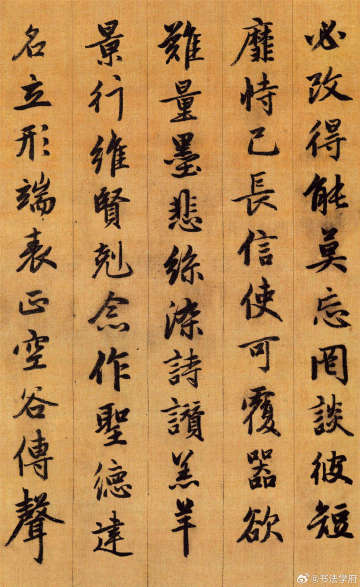 必改得能莫忘罔談彼短
靡恃己長信使可覆器欲
難量墨悲絲染詩讃羔羊
景行維賢剋念作聖德建
名立形端表正空谷傳聲
@书法学府